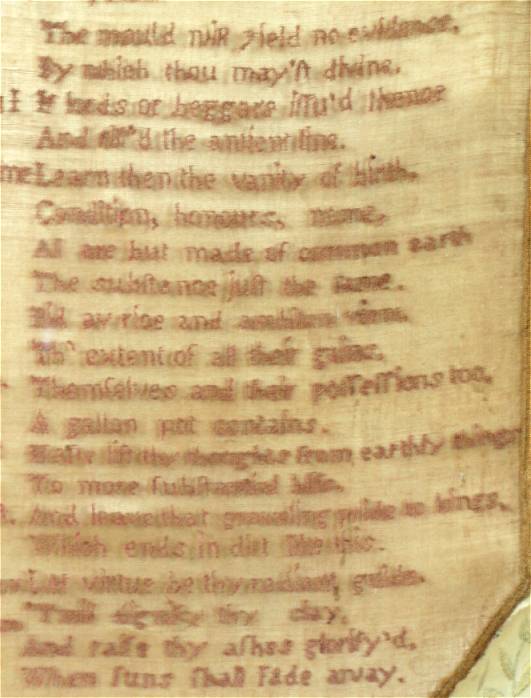 The mould will yield no evidence,
By which thou may'ſt divine,
If lords or beggars iſſu'd thence
And fill'd the antient line.
me Learn then the vanity of birth,
Condition, honours, name,
All are but made of common earth
The subſtance juſt the same.
Did av'rice and ambition view,
Th' extent of all their gains,
Themſelves and their poſſeſſions too,
A gallon pot contains.
lift thy thoughts from earthly things
To more ſubſtantial bliſs.
And leave that grov'ling pride to kings,
Which ends in dirt like this.
Let virtue be thy radiant guide.
'Twill dignify thy clay,
And raiſe thy aſhes glorify'd,
When ſuns ſhall fade away.